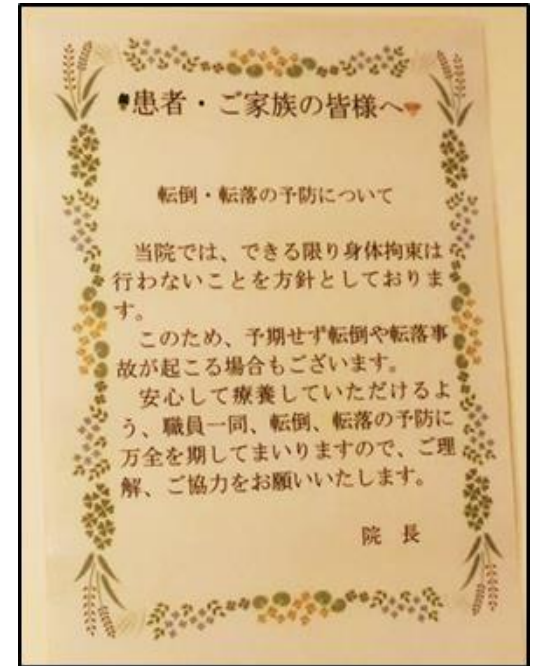 患者・ご家族の皆様へ
転倒・転落の予防について
当院では、できる限り身体拘束は
行わないことを方針としておりま
す。
このため、予期せず転倒や転落事
故が起こる場合もございます。
安心して療養していただけるよ
う、職員一同、転倒、転落の予防に
万全を期してまいりますので、ご理
解、ご協力をお願いいたします。
院 長